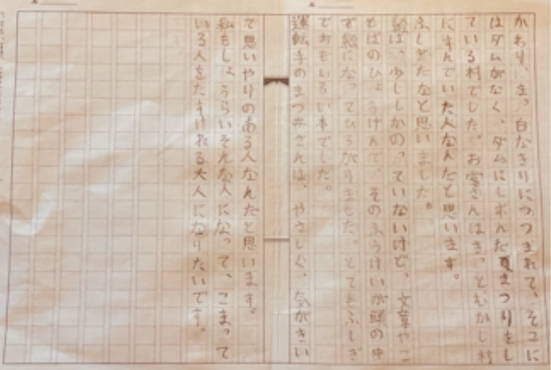 かわり、まっ白なきりにつつまれて、そこに
はダムがなく、ダムにしずんだ夏まつりをし
ている村でした。お客さんはきっとむかし村
にすんでいた人なんだと思います。
ふしぎだなと思いました。
絵は、少ししかのっていないけど、文章やこ
とばのひょうげんで、そのふうけいが頭の中
で絵になってひろがりました。とてもふしぎ
でおもしろい本でした。
運転手のまつみさんは、やさしく、気がきい
て思いやりのある人なんだと思います。
私もしょうらいそんな人になって、こまって
いる人をたすけれる大人になりたいです。